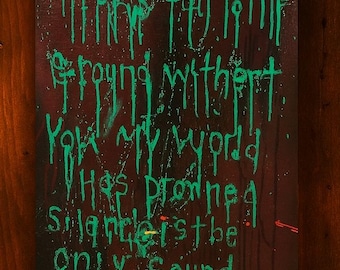 Ground without
You my world
Has Drowned
Silance is the
Only Sound